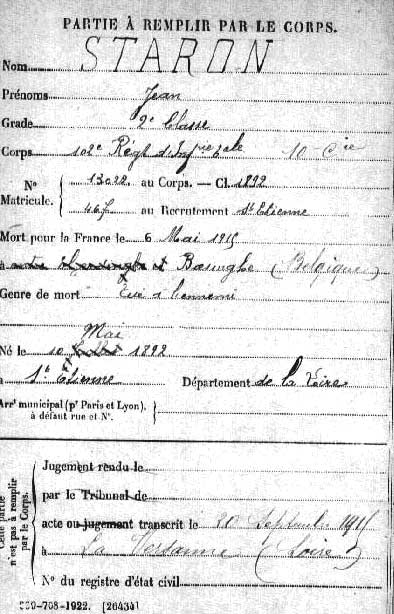 PARTIE À REMPLIR PAR LE CORPS.
Nom STARON
Prénoms Jean
Grade 2e Classe
Corps 102e Régt d'Infrie 10 Cie
N° Matricule. 13028 au Corps. — Cl. 1892
467 au Recrutement St Etienne
Mort pour la France le 6 Mai 1915
à et Boesinghe (Belgique)
Genre de mort Tué à l'ennemi
Mai
Né le 10 1892
à St Etienne Département de la Loire
Arrt municipal (pr Paris et Lyon),
à défaut rue et N°.
Cette partie n'est pas à remplir par le Corps.
Jugement rendu le
par le Tribunal de
acte ou jugement transcrit le 20 Septembre 1915
à La Versanne (Loire)
N° du registre d'état civil
-708-1922. [26434]